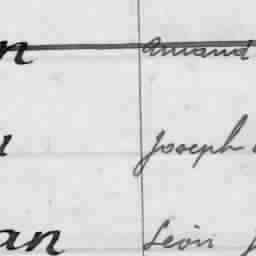 n Amand
Joseph
an Léon